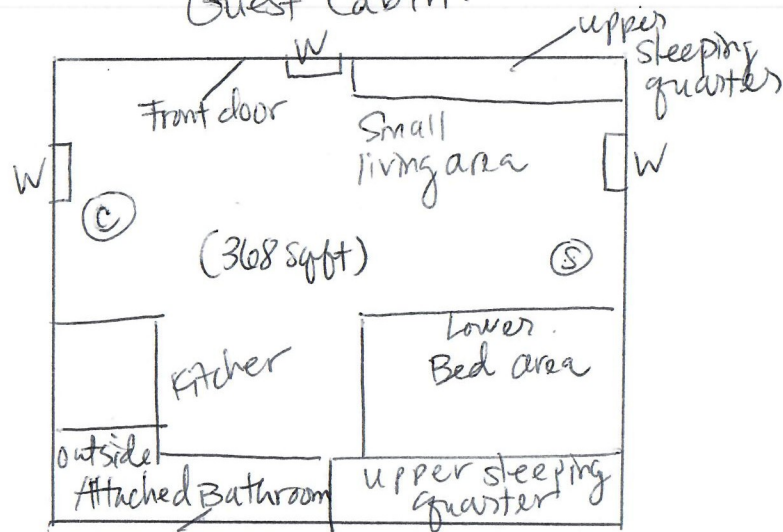 Guest Cabin
upper
sleeping
quarter
W
Front door
Small
living area
W
W
C
(368 sqft)
S
Kitcher
Lower
Bed area
outside
Attached Bathroom
upper sleeping
quarter